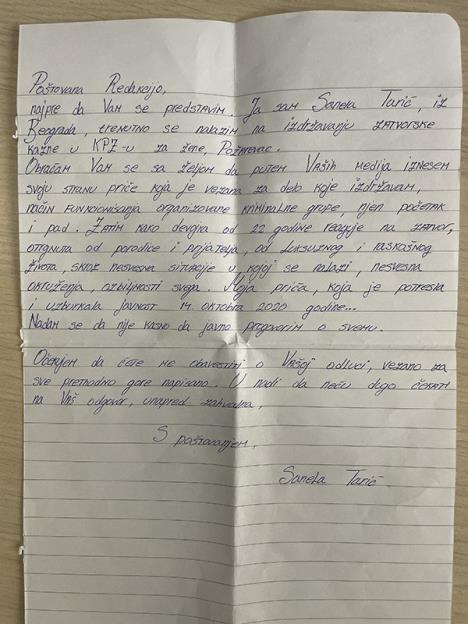 Poštovana Redakcijo,
najpre da Vam se predstavim. Ja sam Sanela Tarić, iz
Beograda, trenutno se nalazim na izdržavanju zatvorske
kazne u KPZ-u za žene, Požarevac.
Obraćam Vam se sa željom da putem Vaših medija iznesem
svoju stranu priče koja je vezana za delo koje izdržavam,
način funkcionisanja organizovane kriminalne grupe, njen početak
i pad. Zatim kako devojka od 22 godine reaguje na zatvor,
otrgnuta od porodice i prijatelja, od luksuznog i raskošnog
života, skroz nesvesna situacije u kojoj se nalazi, nesvesna
okruženja, ozbiljnosti svega. Moja priča, koja je potresla
i uzburkala javnost 14. oktobra 2020 godine...
Nadam se da nije kasno da javno progovorim o svemu.
Očekujem da ćete me obavestiti o Vašoj odluci, vezano za
sve prethodno gore napisano. U nadi da neću dugo čekati
na Vaš odgovor, unapred zahvalna,
S poštovanjem,
Sanela Tarić